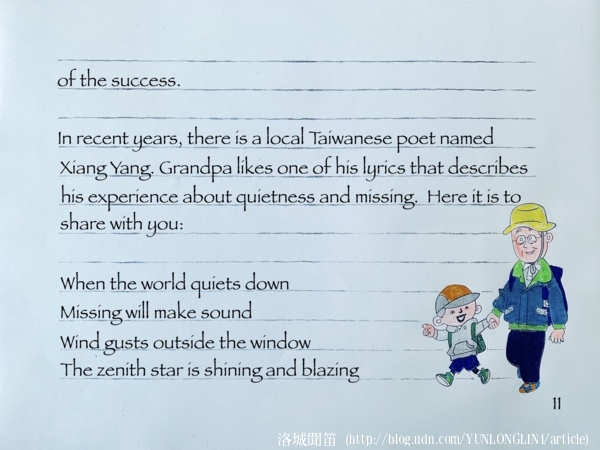 of the success.
In recent years, there is a local Taiwanese poet named
Xiang Yang. Grandpa likes one of his lyrics that describes
his experience about quietness and missing. Here it is to
share with you:
When the world quiets down
Missing will make sound
Wind gusts outside the window
The zenith star is shining and blazing
11
洛城聞笛 (http://blog.udn.com/YUNLONGLIN1/article)